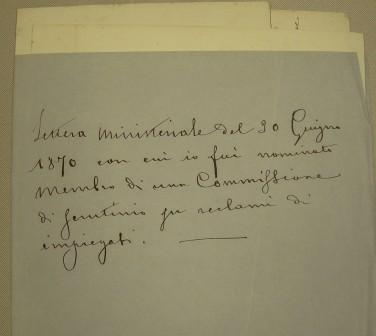 Lettera Ministeriale del 30 Giugno
1870 con cui io fui nominato
membro di una Commissione
di scrutinio su reclami di
impiegati.